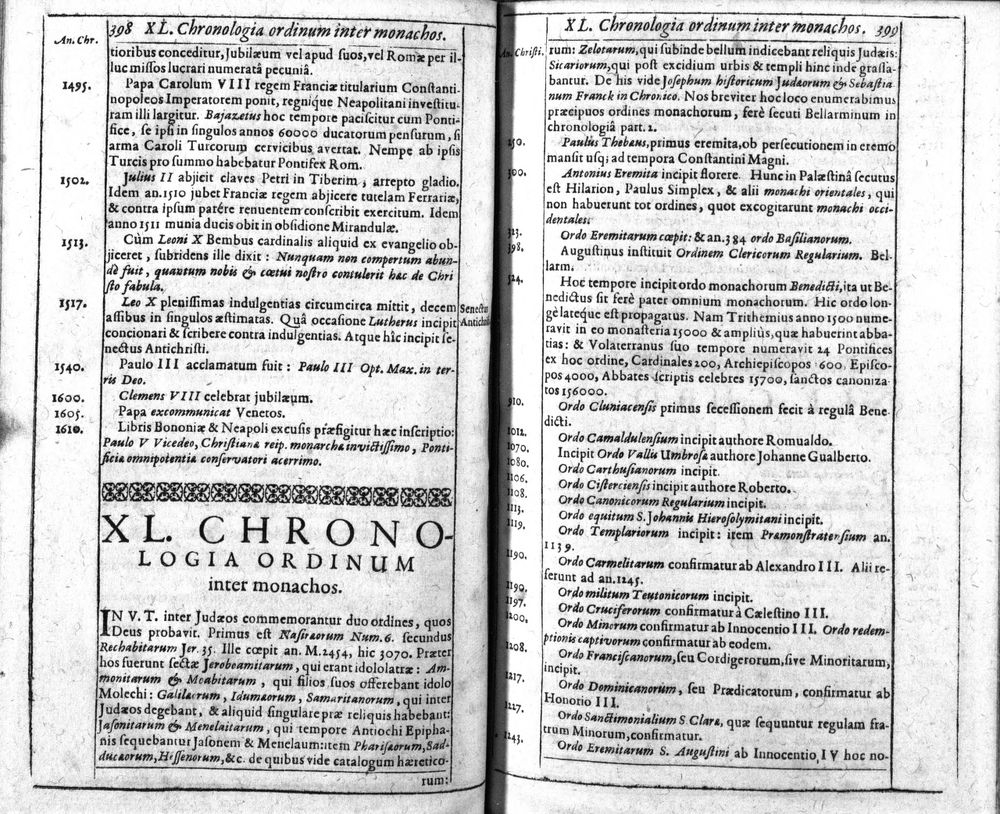 398 XL. Chronologia ordinum inter monachos.
An. Chr.
tioribus conceditur, Jubilæum vel apud suos, vel Romæ per il-
luc missos lucrari numeratâ pecuniâ.
1495. Papa Carolum VIII regem Franciæ titularium Constanti-
nopoleos Imperatorem ponit, regnique Neapolitani investitu-
ram illi largitur. Bajazetus hoc tempore paciscitur cum Ponti-
fice, se ipsi in singulos annos 60000 ducatorum pensurum, si
arma Caroli Turcorum cervicibus avertat. Nempe ab ipsis
Turcis pro summo habebatur Pontifex Rom.
1502. Julius II abjicit claves Petri in Tiberim, arrepto gladio.
Idem an. 1510 jubet Franciæ regem abjicere tutelam Ferrariæ,
& contra ipsum parére renuentem conscribit exercitum. Idem
anno 1511 munia ducis obit in obsidione Mirandulæ.
1513. Cùm Leoni X Bembus cardinalis aliquid ex evangelio ob-
jiceret, subridens ille dixit: Nunquam non compertum abun-
dè fuit, quantum nobis & cœtui nostro contulerit hæc de Chri
sto fabula.
1517. Leo X plenissimas indulgentias circumcirca mittit, decem
assibus in singulos æstimatas. Quâ occasione Lutherus incipit
concionari & scribere contra indulgentias. Atque hîc incipit se-
nectus Antichristi.
Senectus
Antichristi
1540. Paulo III acclamatum fuit: Paulo III Opt. Max. in ter-
ris Deo.
1600. Clemens VIII celebrat jubilæum.
1605. Papa excommunicat Venetos.
1610. Libris Bononiæ & Neapoli excusis præfigitur hæc inscriptio:
Paulo V Vicedeo, Christianæ reip. monarchæ invictissimo, Ponti-
ficiæ omnipotentiæ conservatori acerrimo.
XL. CHRONO-
LOGIA ORDINUM
inter monachos.
IN V. T. inter Judæos commemorantur duo ordines, quos
Deus probavit. Primus est Nasiræorum Num. 6. secundus
Rechabitarum Jer. 35. Ille cœpit an. M. 2454, hic 3070. Præter
hos fuerunt sectæ Jeroboamitarum, qui erant idololatræ: Am-
monitarum & Moabitarum, qui filios suos offerebant idolo
Molechi: Galilæorum, Idumæorum, Samaritanorum, qui inter
Judæos degebant, & aliquid singulare præ reliquis habebant:
Jasonitarum & Menelaitarum, qui tempore Antiochi Epipha-
nis sequebantur Jasonem & Menelaum: item Pharisæorum, Sad-
ducæorum, Hessenorum, &c. de quibus vide catalogum hæretico-
rum:
XL. Chronologia ordinum inter monachos. 399
An. Christi.
rum: Zelotarum, qui subinde bellum indicebant reliquis Judæis:
Sicariorum, qui post excidium urbis & templi hinc inde grassa-
bantur. De his vide Josephum historicum Judæorum & Sebastia
num Franck in Chronico. Nos breviter hoc loco enumerabimus
præcipuos ordines monachorum, ferè secuti Bellarminum in
chronologiâ part. 2.
250. Paulus Thebæus, primus eremita, ob persecutionem in eremo
mansit usq; ad tempora Constantini Magni.
300. Antonius Eremita incipit florere. Hunc in Palæstinâ secutus
est Hilarion, Paulus Simplex, & alii monachi orientales, qui
non habuerunt tot ordines, quot excogitarunt monachi occi-
dentales.
323. Ordo Eremitarum cœpit: & an. 384 ordo Basilianorum.
398. Augustinus instituit Ordinem Clericorum Regularium. Bel-
larm.
524. Hoc tempore incipit ordo monachorum Benedicti, ita ut Be-
nedictus sit ferè pater omnium monachorum. Hic ordo lon-
gè lateque est propagatus. Nam Trithemius anno 1500 nume-
ravit in eo monasteria 15000 & ampliùs, quæ habuerint abba-
tias: & Volaterranus suo tempore numeravit 24 Pontifices
ex hoc ordine, Cardinales 200, Archiepiscopos 1600, Episco-
pos 4000, Abbates scriptis celebres 15700, sanctos canoniza-
tos 156000.
910. Ordo Cluniacensis primus secessionem fecit à regulâ Bene
dicti.
1012. Ordo Camaldulensium incipit authore Romualdo.
1070. Incipit Ordo Vallis Umbrosæ authore Johanne Gualberto.
1080. Ordo Carthusianorum incipit.
1106. Ordo Cisterciensis incipit authore Roberto.
1108. Ordo Canonicorum Regularium incipit.
1113. Ordo equitum S. Johannis Hierosolymitani incipit.
1119. Ordo Templariorum incipit: item Præmonstratensium an.
1139.
1190. Ordo Carmelitarum confirmatur ab Alexandro III. Alii re-
ferunt ad an. 1245.
1190. Ordo militum Teutonicorum incipit.
1197. Ordo Cruciferorum confirmatur à Cælestino III.
1200. Ordo Minorum confirmatur ab Innocentio III. Ordo redem-
ptionis captivorum confirmatur ab eodem.
1208. Ordo Franciscanorum, seu Cordigerorum, sive Minoritarum,
incipit.
1217. Ordo Dominicanorum, seu Prædicatorum, confirmatur ab
Honorio III.
1227. Ordo Sanctimonialium S. Claræ, quæ sequuntur regulam fra-
trum Minorum, confirmatur.
1243. Ordo Eremitarum S. Augustini ab Innocentio IV hoc no-